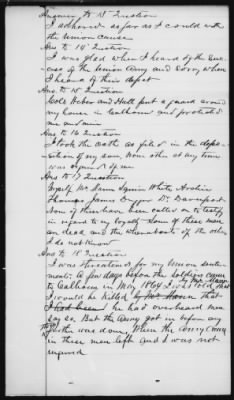 Answer to 13" Question
I adhered as far as I could with
the Union cause
Ans to 14" Question
I was glad when I heard of the suc-
cess of the Union Army and sorry when
I heard of their defeat
Ans to 15 Question
Cols Heber and Hall put a guard around
my house in Calhoun and protected
me and mine
Ans to 16 Question
I took the oath as filed in the depo-
sition of my son, None other at any time
was required of me
Ans to 17 Question
Myself Mr Dunn Squire White
Thomas James Dr. Davenport
None of them have been called on to testify
in regard to my loyalty Some of these men
are dead and the whereabouts of the others
I do not know
Ans to 18 Question
I was threatened for my Union senti-
ments. A few days before the Soldiers came
to Calhoun in May 1864 I was told that
I would be killed by Mr Mann that
he had overheard men
say so But the Army got in before any
was done, When the Army came
in these men left and I was not
injured